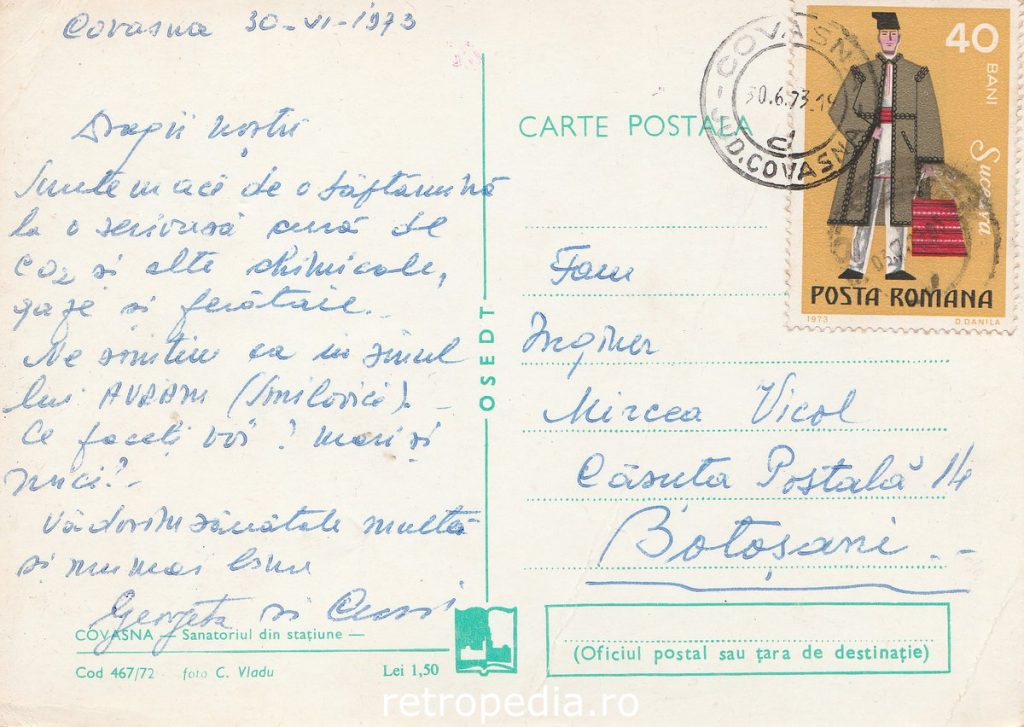 Covasna 30-VI-1973
Dragii noștri
Suntem aci de o săftămînă
la o serioasă cură de
CO2 și alte chimicale,
gaze și ferătaie.
Ne simțim ca în sînul
lui AVRAM (Smilovici). —
Ce faceți voi? mari și
mici? —
Vă dorim sănătate multă
și numai bine
Georgeta și
COVASNA — Sanatoriul din stațiune —
Cod 467/72 foto C. Vladu Lei 1,50
OSEDT
CARTE POSTALA
COVASNA
30.6.73.19
d
JUD. COVASNA
40
BANI
Suceava
POSTA ROMANA
1973 D. DANILA
Fam
Inginer
Mircea Vicol
Căsuța Postală 14
Botoșani. —
(Oficiul postal sau țara de destinație)
retropedia.ro